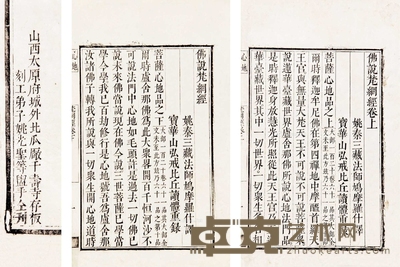 佛說梵網經卷上
姚秦三藏法師鳩摩羅什譯
寶華山弘戒比丘讀體重錄
菩薩心地品之上
爾時釋迦牟尼佛在第四禪地中摩醯首羅天
王宮與無量大梵天王不可說不可說菩薩衆
說蓮華臺藏世界盧舍那佛所說心地法門品
是時釋迦身放慧光所照從此天王宮乃至蓮
華臺藏世界其中一切世界一切衆生各各相
佛說梵網經
姚秦三藏法師鳩摩羅什譯
寶華山弘戒比丘讀體重錄
菩薩心地品之下
爾時盧舍那佛爲此大衆畧開百千恒河沙不
可說法門中心地如毛頭許是過去一切佛已
說未來佛當說現在佛今說三世菩薩已學當
學今學我已百劫修行是心地號吾爲盧舍那
汝諸佛子轉我所說與一切衆生開心地道時
山西太原府城外北瓜廠千壽寺
刻工弟子姚